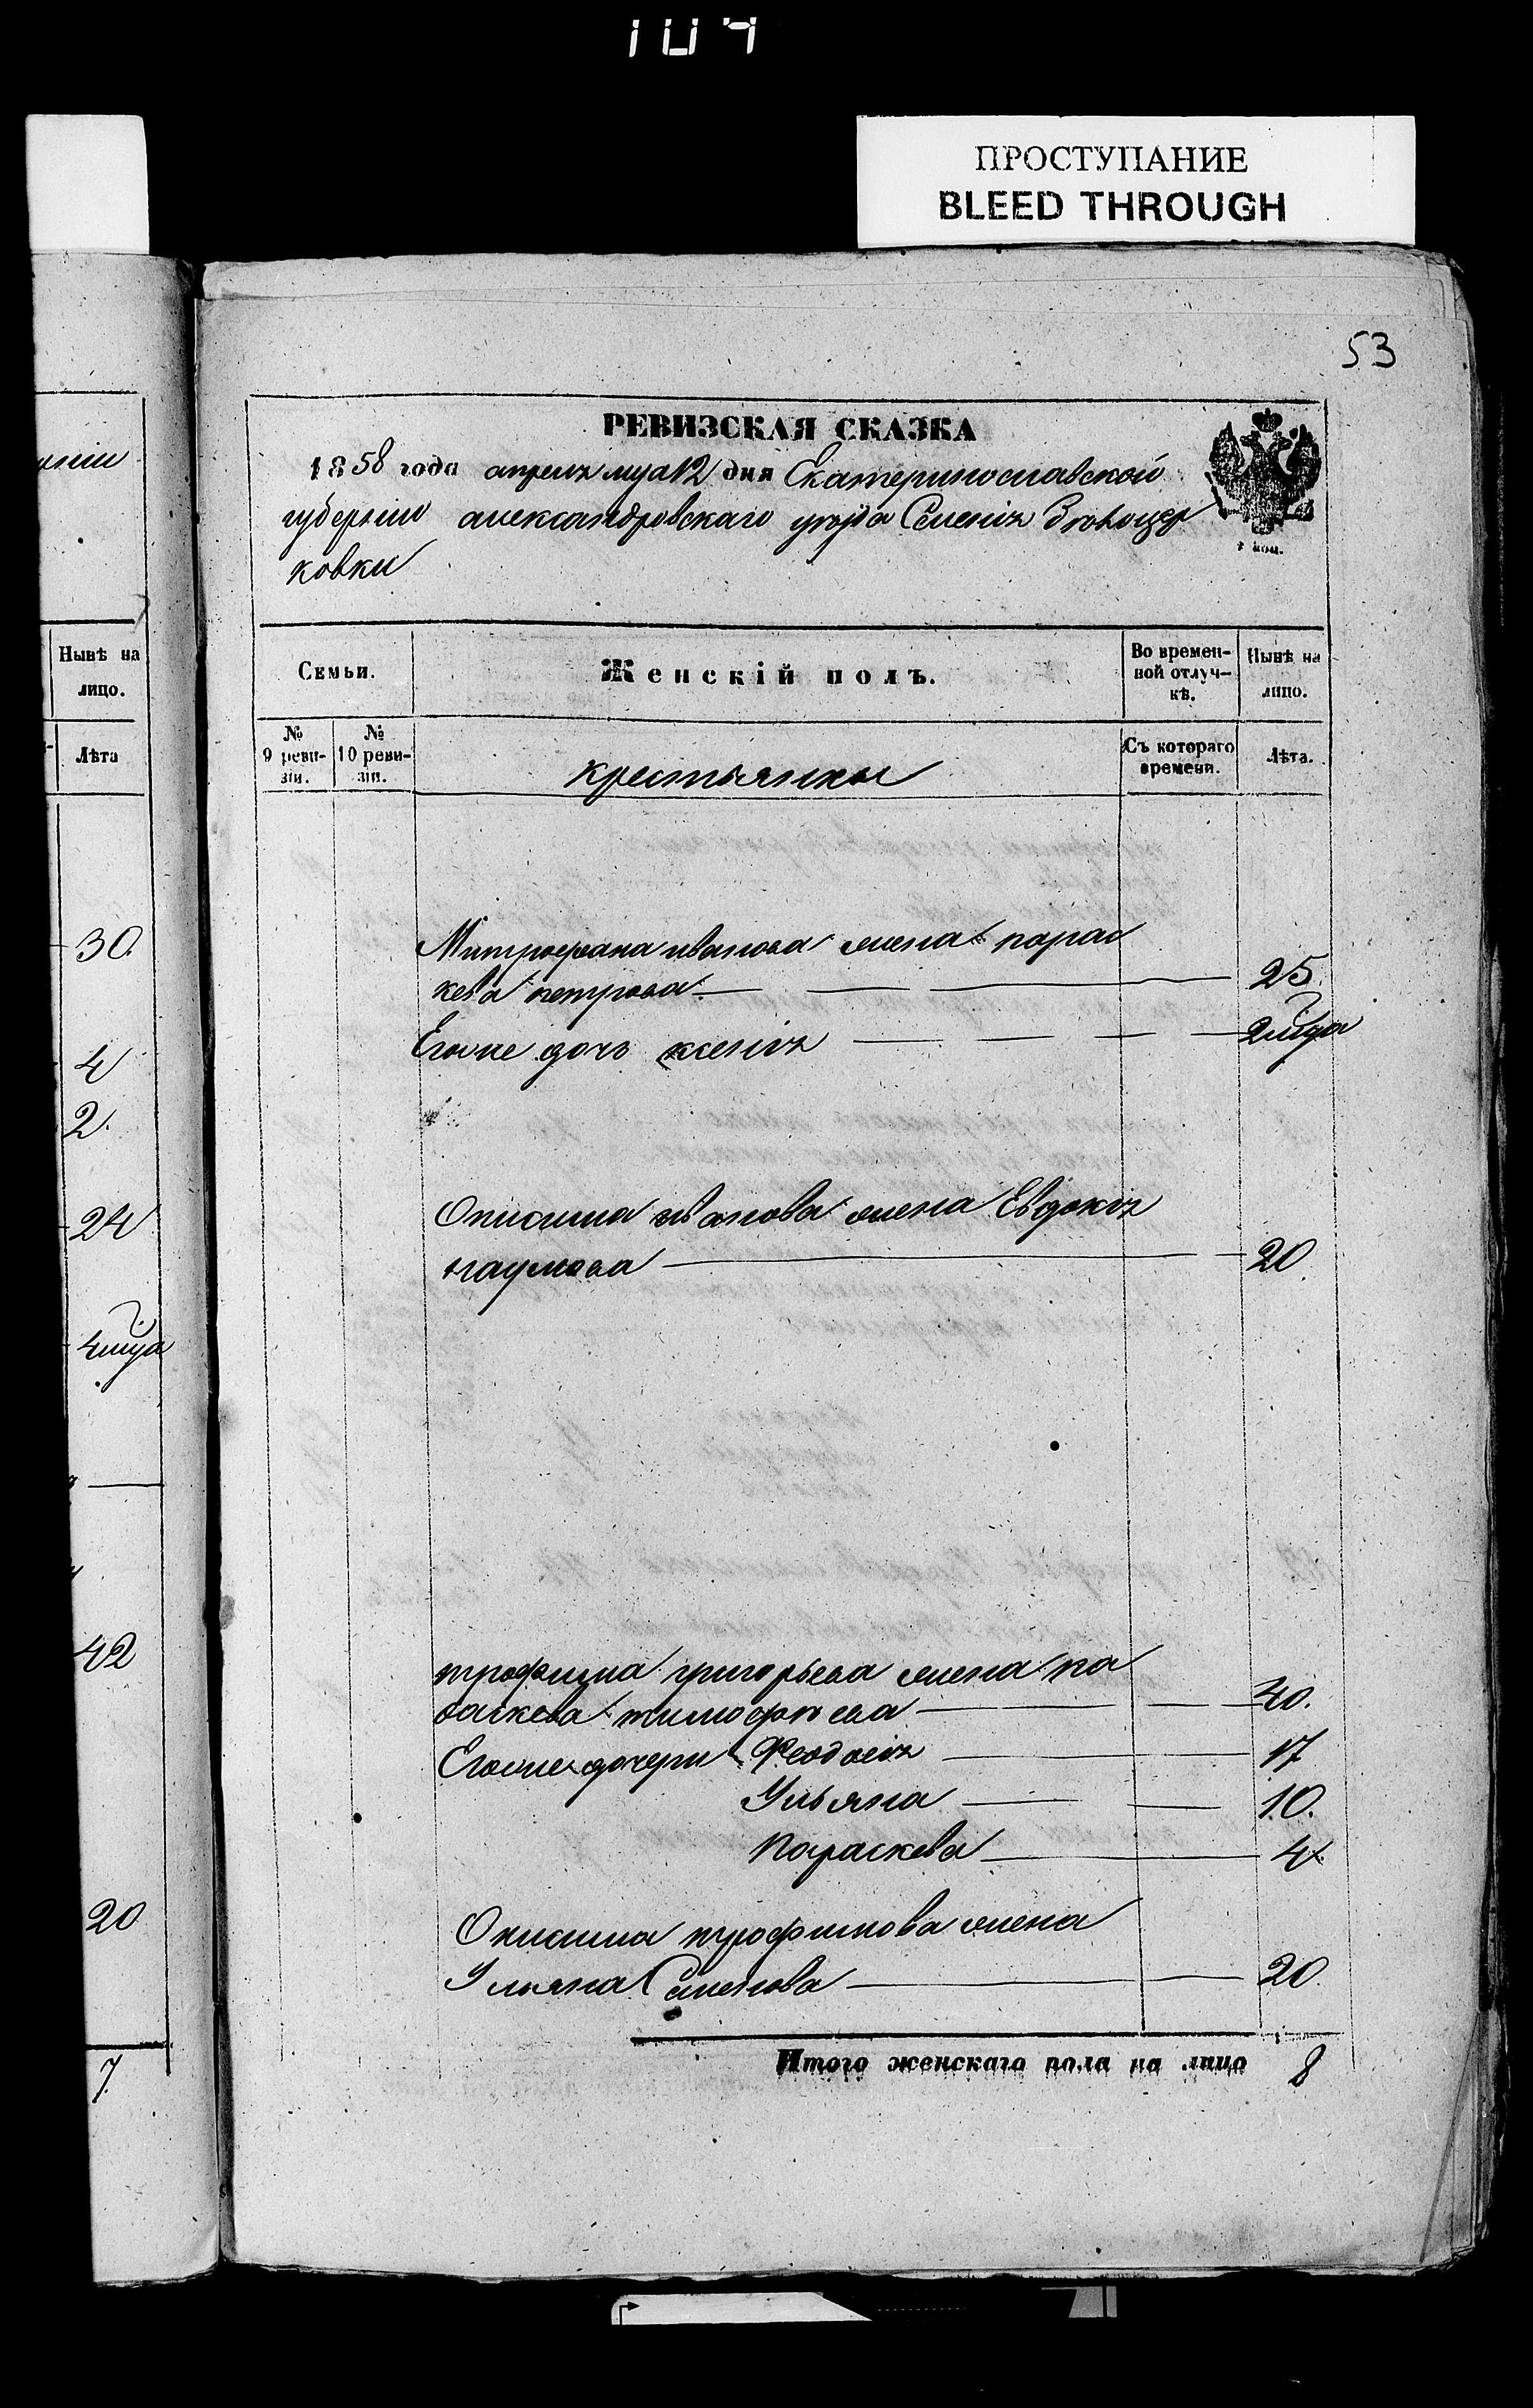 104
ПРОСТУПАНИЕ
BLEED THROUGH
53
РЕВИЗСКАЯ СКАЗКА
1858 года апреля мца 12 дня Екатеринославской
губерніи александровскаго уезда Селенія
ковки
Семьи.
Женскій полъ.
Во времен-
ной отлуч-
кѣ.
Нынѣ на
лицо.
№
9 реви-
зіи.
№
10 реви-
зіи.
крестьянки
Съ котораго
времени.
Лѣта.
Митрофана иванова жена парас
кева петрова 25.
Егоже дочь ксенія 2 мца
Онисима иванова жена Евдокія
наумова 20
трофима григорьева жена па
раскева тимофѣева 40.
Егоже дочери Феодосія 17
Ульяна 10.
Параскева 4
Онисима трофимова жена
Ульяна Семенова 20.
Итого женскаго пола на лицо 8
Нынѣ на
лицо.
Лѣта
30.
4
2.
24
4 мца
42
20
7.